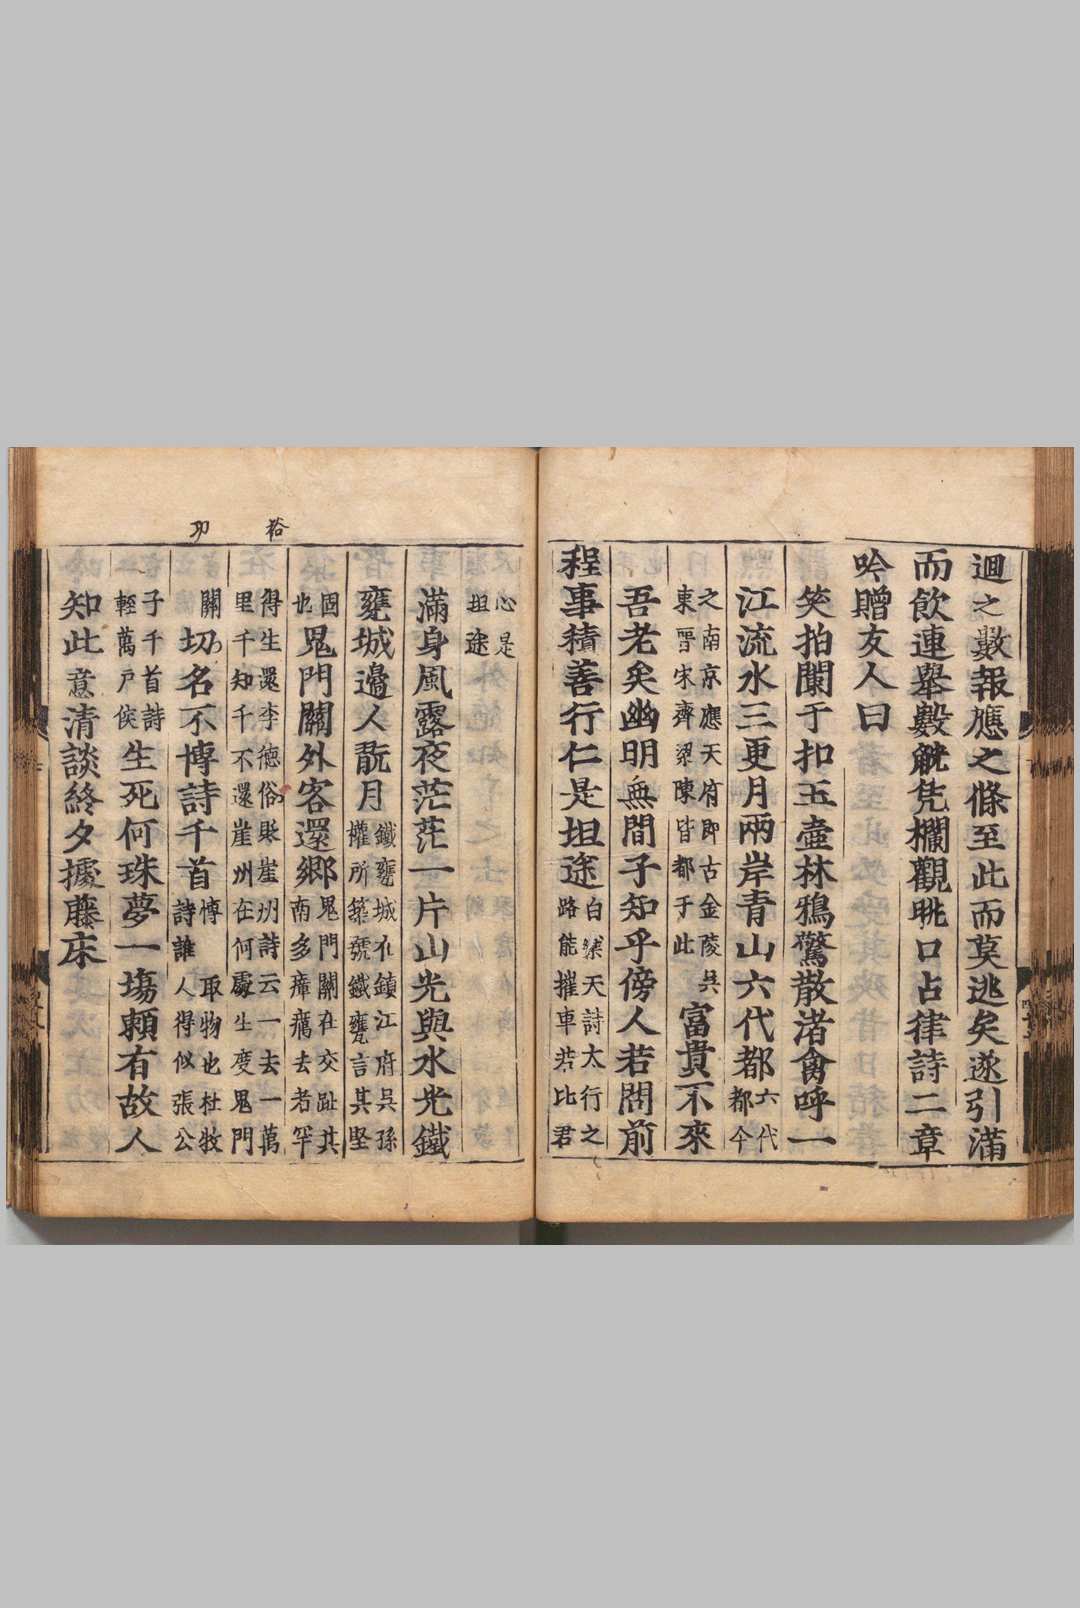 迴之數報應之條至此而莫逃矣遂引滿
而飮連擧數觥凭欄觀眺口占律詩二章
吟贈友人曰
笑拍闌干扣玉壺林鴉驚散渚禽呼一
江流水三更月兩岸青山六代都六代都今
之南京應天府即古金陵吳東晋宋齊梁陳皆都于此富貴不來
吾老矣幽明無間子知乎傍人若問前
程事積善行仁是坦途白樂天詩太行之路能摧車若比君
心是坦途
滿身風露夜茫茫一片山光與水光鐵
甕城邊人翫月鐵甕城在鎮江府吳孫權所築號鐵甕言其堅
固也鬼門關外客還鄉鬼門關在交趾其南多瘴癘去者罕
裕
得生還李德俗貶崖州詩云一去一萬里千知千不還崖州在何處生度鬼門
功
關切名不博詩千首博取物也杜牧詩誰人得似張公
子千首詩輕萬戶侯生死何珠夢一塲賴有故人
知此意清談終夕據藤床